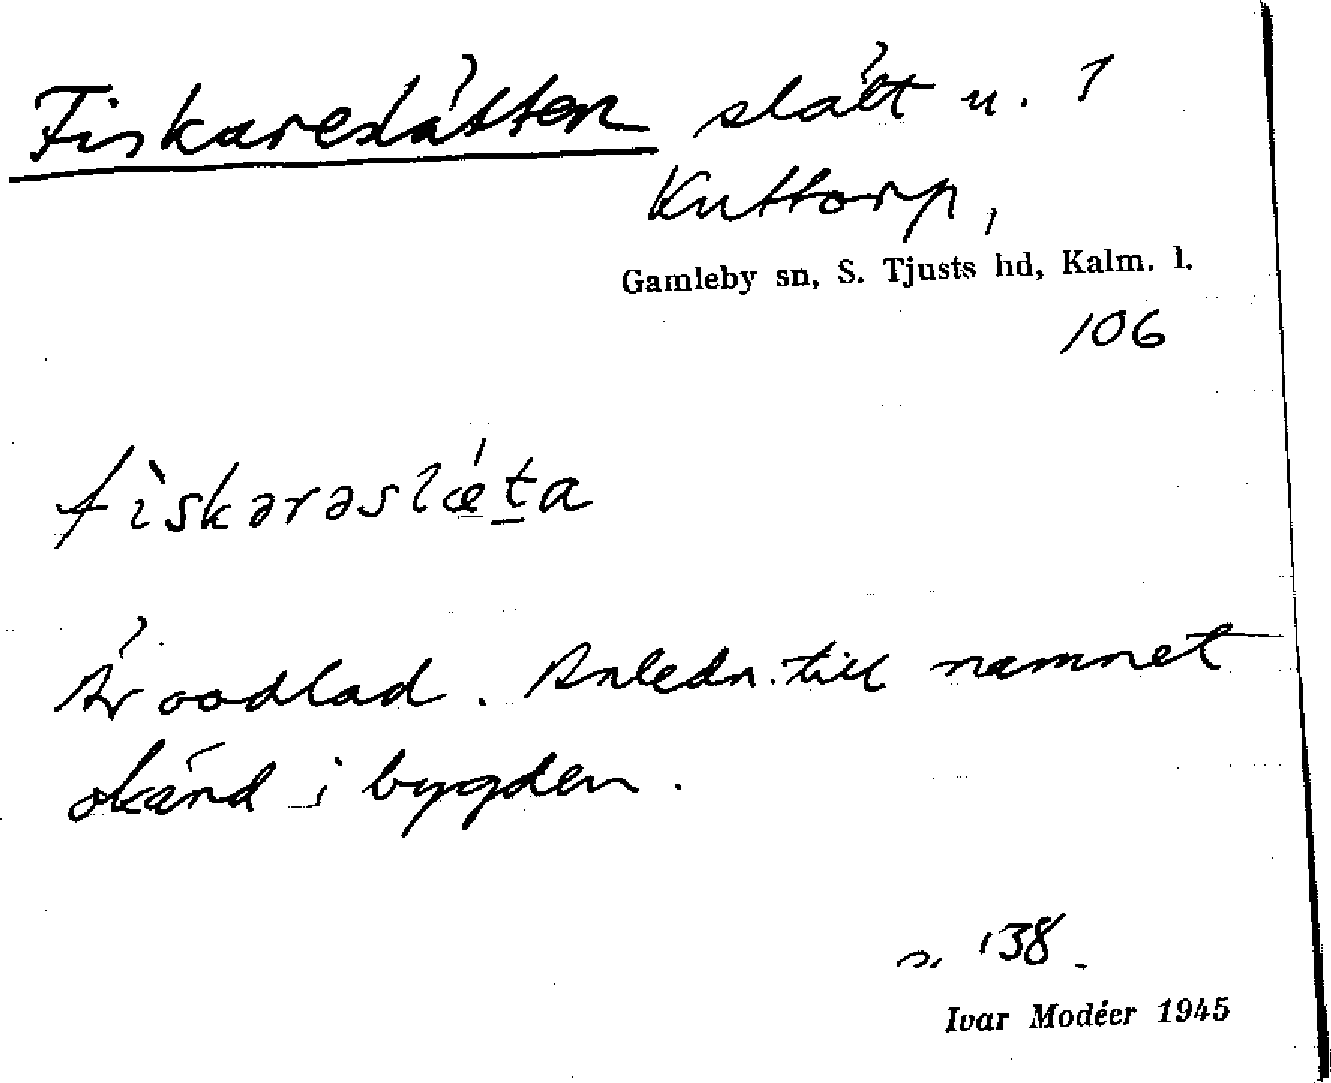 Fiskareslätten slätt u. 1
Kuttorp,
Gamleby sn, S. Tjusts hd, Kalm. l.
106
fìskərəslǽta
Är oodlad. Anledn. till namnet
okänd i bygden.
s. 138.
Ivar Modéer 1945